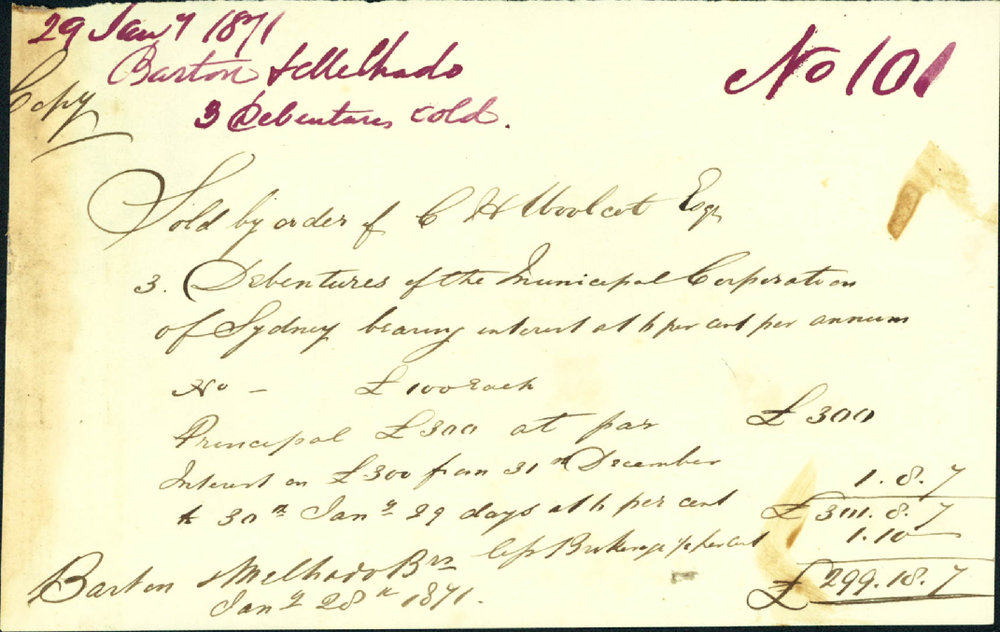 29 Jany 1871
Barton & Melhado
3 Debentures sold.
No 101
Copy
Sold by order of C H Woolcot Esqr
3. Debentures of the Municipal Corporation
of Sydney bearing interest at 6 per cent per annum
No - £100 each
Principal £300 at par £300
Interest on £300 from 31st December
to 30th Jany 29 days at 6 per cent 1.8.7
£301.8.7
less Brokerage ½ per cent 1.10
£299.18.7
Barton & Melhado Brs
Jany 28th 1871.